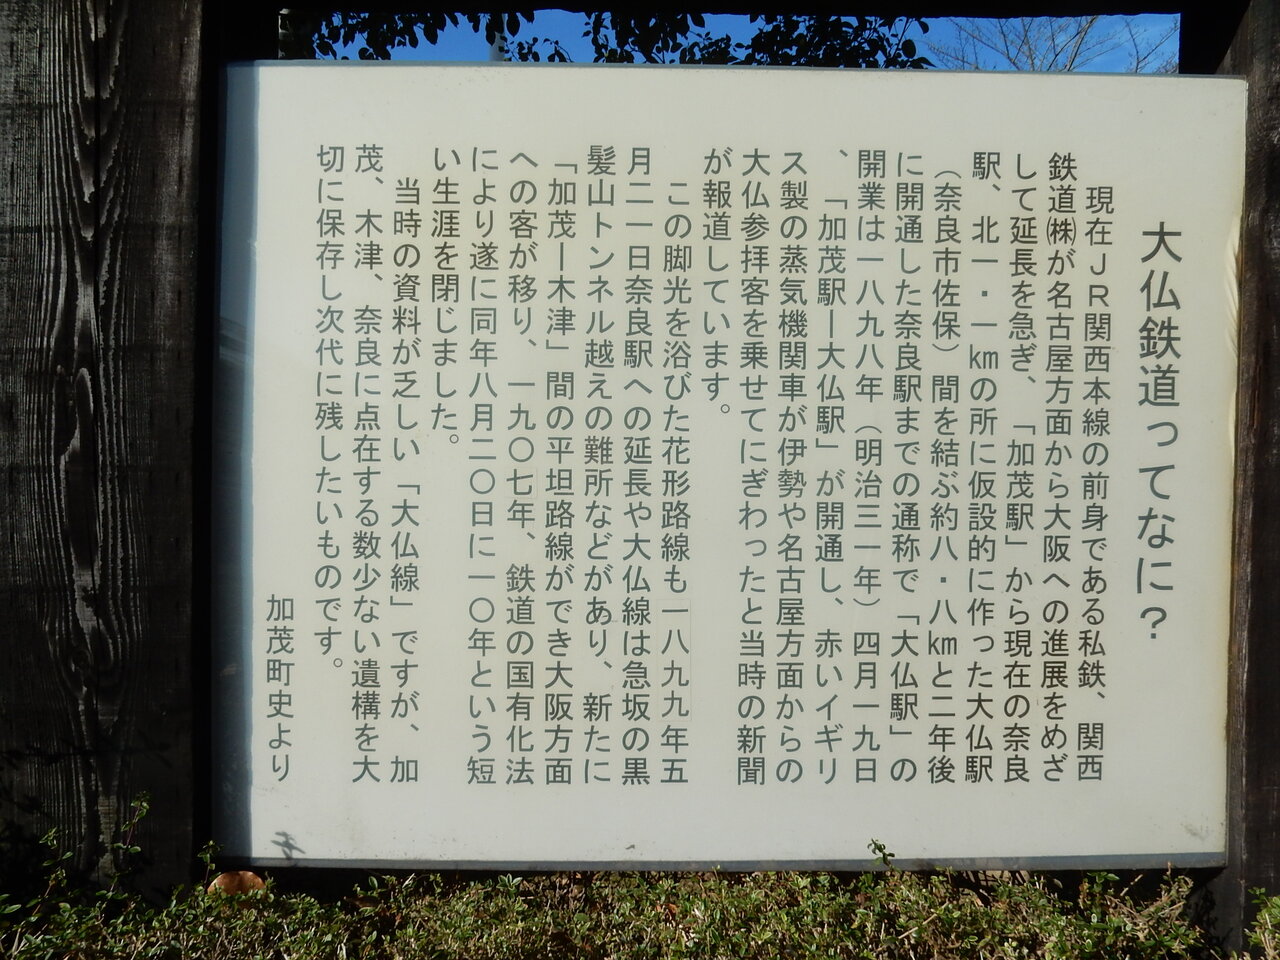 大仏鉄道ってなに？
現在ＪＲ関西本線の前身である私鉄、関西
鉄道㈱が名古屋方面から大阪への進展をめざ
して延長を急ぎ、「加茂駅」から現在の奈良
駅、北一・一㎞の所に仮設的に作った大仏駅
（奈良市佐保）間を結ぶ約八・八㎞と二年後
に開通した奈良駅までの通称で「大仏駅」の
開業は一八九八年（明治三一年）四月一九日
、「加茂駅ー大仏駅」が開通し、赤いイギリ
ス製の蒸気機関車が伊勢や名古屋方面からの
大仏参拝客を乗せてにぎわったと当時の新聞
が報道しています。
この脚光を浴びた花形路線も一八九九年五
月二一日奈良駅への延長や大仏線は急坂の黒
髪山トンネル越えの難所などがあり、新たに
「加茂ー木津」間の平坦路線ができ大阪方面
への客が移り、一九〇七年、鉄道の国有化法
により遂に同年八月二〇日に一〇年という短
い生涯を閉じました。
当時の資料が乏しい「大仏線」ですが、加
茂、木津、奈良に点在する数少ない遺構を大
切に保存し次代に残したいものです。
加茂町史より